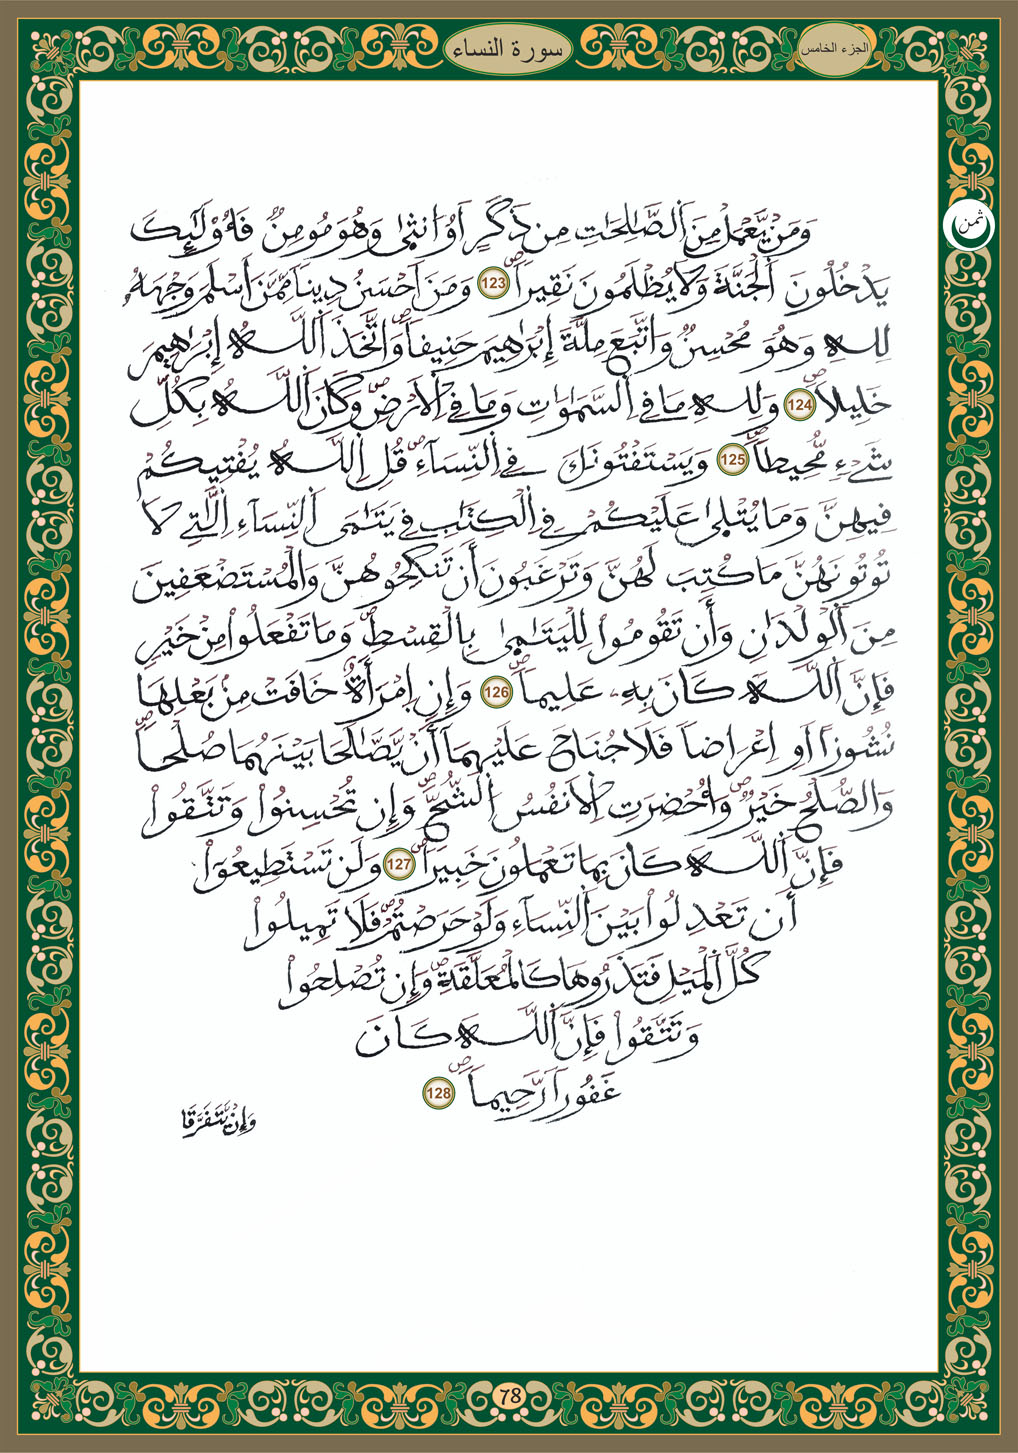 سورة النساء
الجزء الخامس
ثمن
وَمَنْ يَّعْمَلْ مِنَ اَ۬لصَّٰلِحَٰتِ مِن ذَكَرٍ اَوُ ا۟نث۪ىٰ وَهُوَ مُومِنٞ فَأُوْلَٰٓئِكَ
يَدْخُلُونَ اَ۬لْجَنَّةَ وَلَا يُظْلَمُونَ نَقِيراٗۖ 123 وَمَنَ اَحْسَنُ دِيناٗ مِّمَّنَ اَسْلَمَ وَجْهَهُۥ
لِلهِ وَهُوَ مُحْسِنٞ وَاتَّبَعَ مِلَّةَ إِبْرَٰهِيمَ حَنِيفاٗۖ وَاتَّخَذَ اَ۬للَّهُ إِبْرَٰهِيمَ
خَلِيلاٗۖ 124 وَلِلهِ مَا فِے اِ۬لسَّمَٰوَٰتِ وَمَا فِے اِ۬لَارْضِۖ وَكَانَ اَ۬للَّهُ بِكُلِّ
شَےْءٖ مُّحِيطاٗۖ 125 وَيَسْتَفْتُونَكَ فِے اِ۬لنِّسَآءِۖ قُلِ اِ۬للَّهُ يُفْتِيكُمْ
فِيهِنَّ وَمَا يُتْل۪ىٰ عَلَيْكُمْ فِے اِ۬لْكِتَٰبِ فِے يَتَٰمَى اَ۬لنِّسَآءِ اِ۬لَّٰتِے لَا
تُوتُونَهُنَّ مَا كُتِبَ لَهُنَّ وَتَرْغَبُونَ أَن تَنكِحُوهُنَّ وَالْمُسْتَضْعَفِينَ
مِنَ اَ۬لْوِلْدَٰنِ وَأَن تَقُومُواْ لِلْيَتَٰم۪ىٰ بِالْقِسْطِۖ وَمَا تَفْعَلُواْ مِنْ خَيْرٖ
فَإِنَّ اَ۬للَّهَ كَانَ بِهِۦ عَلِيماٗۖ 126 وَإِنِ اِ۪مْرَأَةٌ خَافَتْ مِنۢ بَعْلِهَا
نُشُوزاً اَوِ اِعْرَاضاٗ فَلَا جُنَاحَ عَلَيْهِمَآ أَنْ يَّصَّٰلَحَا بَيْنَهُمَا صُلْحاٗۖ
وَالصُّلْحُ خَيْرٞۖ وَأُحْضِرَتِ اِ۬لَانفُسُ اُ۬لشُّحَّۖ وَإِن تُحْسِنُواْ وَتَتَّقُواْ
فَإِنَّ اَ۬للَّهَ كَانَ بِمَا تَعْمَلُونَ خَبِيراٗۖ 127 وَلَن تَسْتَطِيعُوٓاْ
أَن تَعْدِلُواْ بَيْنَ اَ۬لنِّسَآءِ وَلَوْ حَرَصْتُمْۖ فَلَا تَمِيلُواْ
كُلَّ اَ۬لْمَيْلِ فَتَذَرُوهَا كَالْمُعَلَّقَةِۖ وَإِن تُصْلِحُواْ
وَتَتَّقُواْ فَإِنَّ اَ۬للَّهَ كَانَ
غَفُوراٗ رَّحِيماٗۖ 128
وَإِنْ يَّتَفَرَّقَا
78